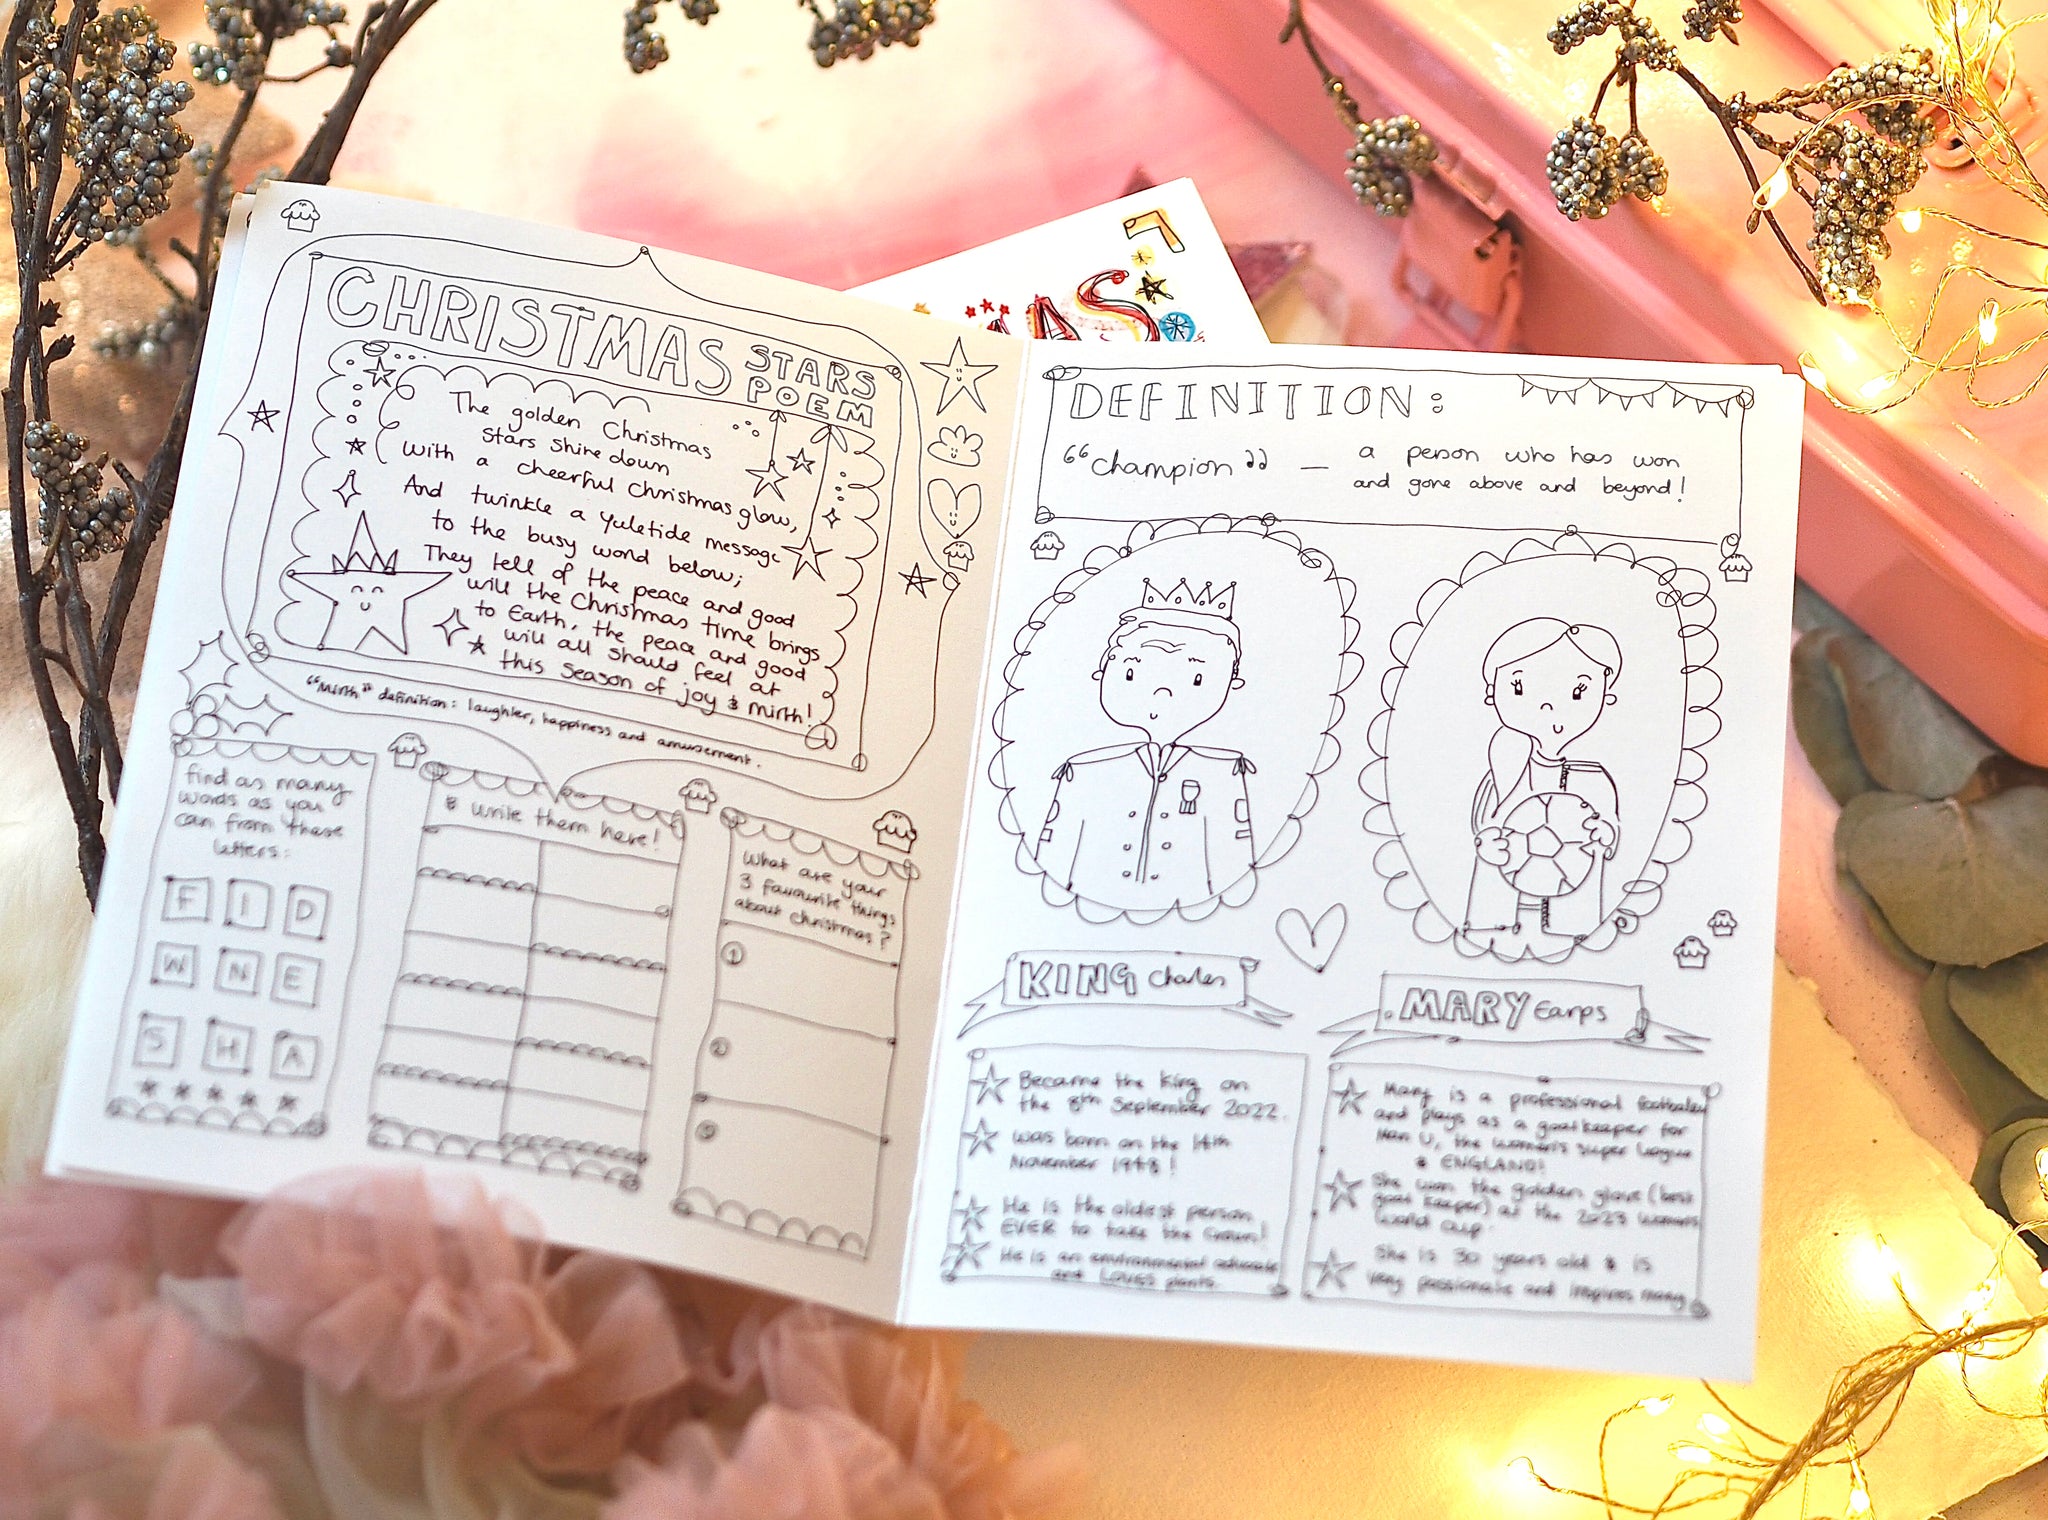 CHRISTMAS STARS
POEM
The golden Christmas
stars shine down
with a cheerful Christmas glow,
And twinkle a Yuletide message
to the busy world below;
They tell of the peace and good
will the Christmas time brings
to Earth, the peace and good
will all should feel at
this season of joy & mirth!
"Mirth" definition: laughter, happiness and amusement.
find as many
words as you
can from these
letters:
F I D
W N E
S H A
& write them here!
What are your
3 favourite things
about Christmas?
1
2
3
AS
DEFINITION:
"Champion" — a person who has won
and gone above and beyond!
KING Charles
Became the King on
the 8th September 2022.
was born on the 14th
November 1948!
He is the oldest person
EVER to take the Crown!
He is an environmental advocate
and LOVES plants.
MARY Earps
Mary is a professional footballer
and plays as a goalkeeper for
Man U, the women's super league
& ENGLAND!
She won the golden glove (best
goal keeper) at the 2023 women's
world cup.
She is 30 years old & is
very passionate and inspires many